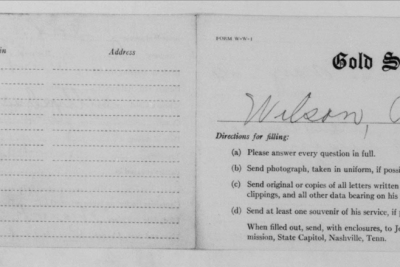 in
Address
FORM W-W-1
Gold S
Wilson,
Directions for filling:
(a) Please answer every question in full.
(b) Send photograph, taken in uniform, if possi
(c) Send original or copies of all letters written
clippings, and all other data bearing on his
(d) Send at least one souvenir of his service, if p
When filled out, send, with enclosures, to Jo
mission, State Capitol, Nashville, Tenn.